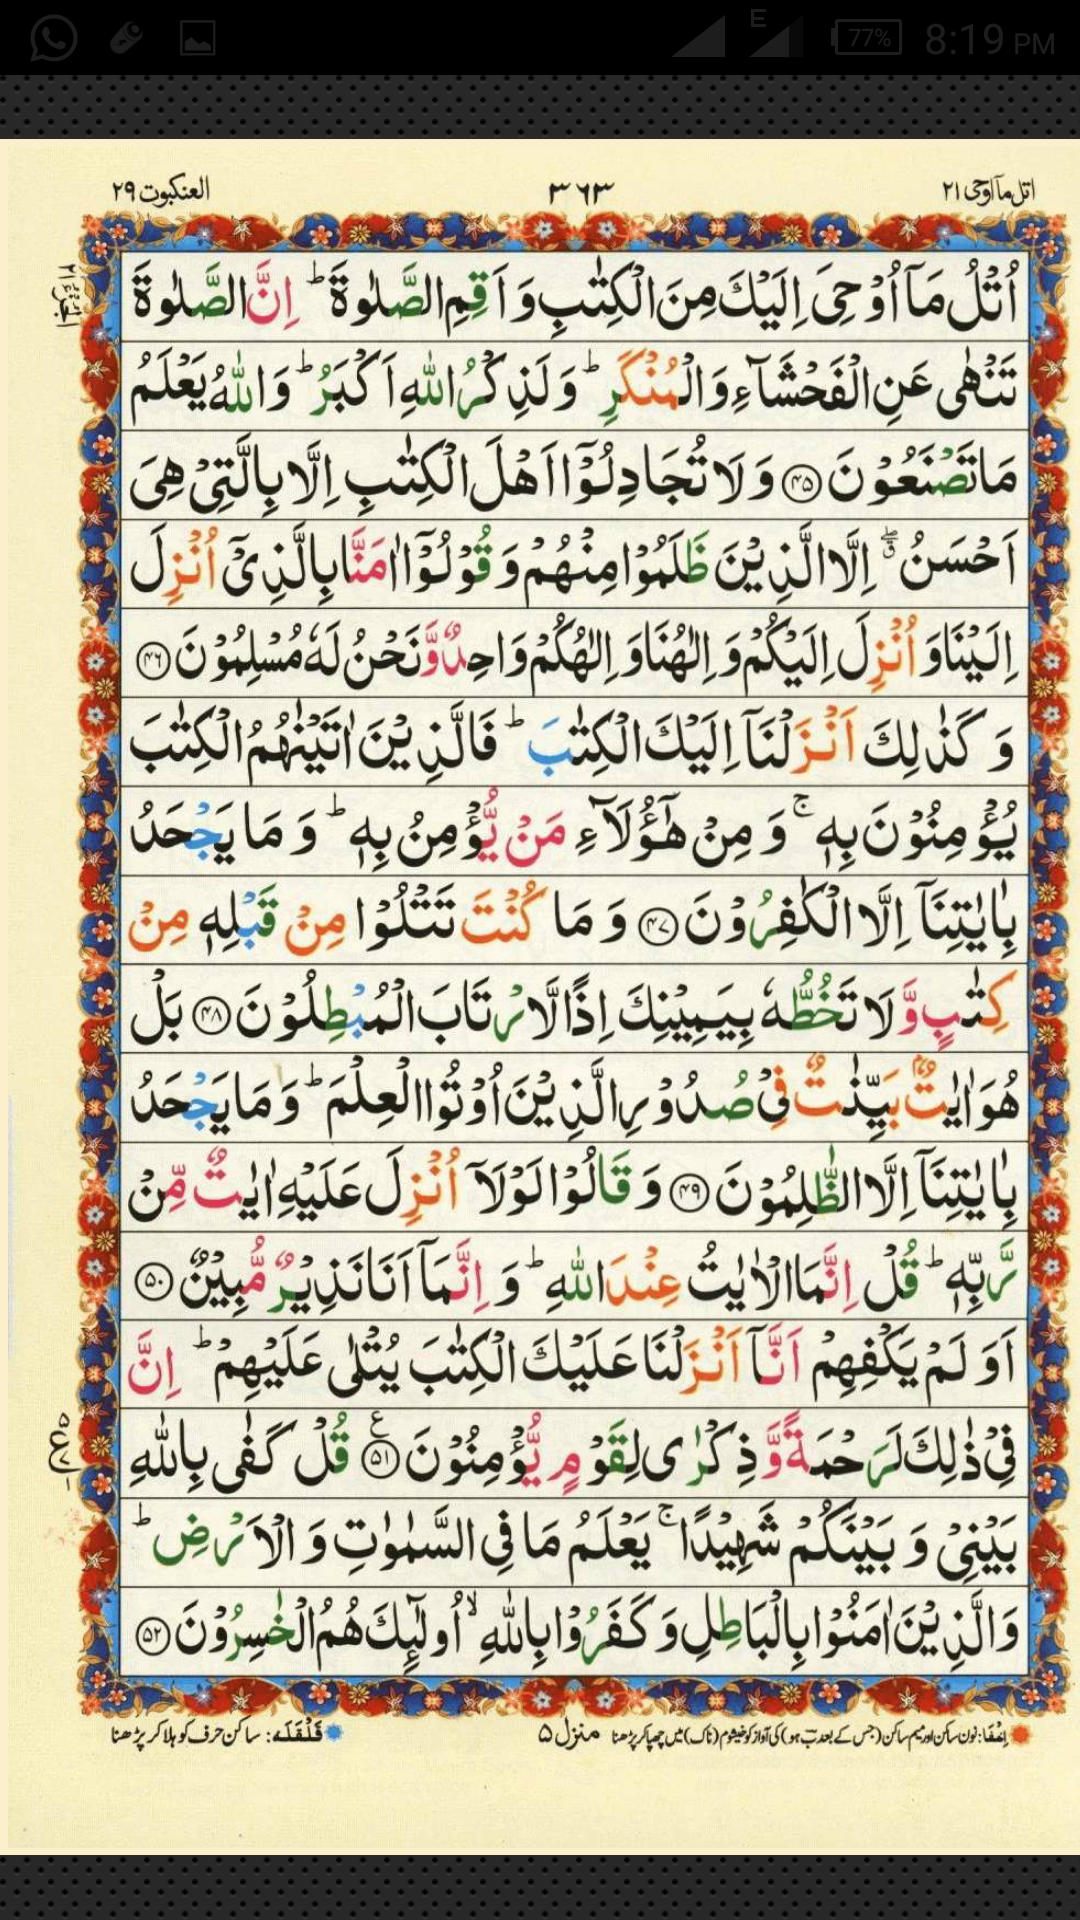 E 77% 8:19 PM
اتل مآ اوحی ۲۱ ۳۶۳ العنکبوت ۲۹
اُتْلُ مَاۤ اُوْحِیَ اِلَیْكَ مِنَ الْكِتٰبِ وَ اَقِمِ الصَّلٰوةَ ؕ اِنَّ الصَّلٰوةَ
تَنْهٰی عَنِ الْفَحْشَآءِ وَ الْمُنْكَرِ ؕ وَ لَذِكْرُ اللّٰهِ اَكْبَرُ ؕ وَ اللّٰهُ یَعْلَمُ
مَا تَصْنَعُوْنَ ۝۴۵ وَ لَا تُجَادِلُوْۤا اَهْلَ الْكِتٰبِ اِلَّا بِالَّتِیْ هِیَ
اَحْسَنُ ۖۗ اِلَّا الَّذِیْنَ ظَلَمُوْا مِنْهُمْ وَ قُوْلُوْۤا اٰمَنَّا بِالَّذِیْۤ اُنْزِلَ
اِلَیْنَا وَ اُنْزِلَ اِلَیْكُمْ وَ اِلٰهُنَا وَ اِلٰهُكُمْ وَاحِدٌ وَّ نَحْنُ لَهٗ مُسْلِمُوْنَ ۝۴۶
وَ كَذٰلِكَ اَنْزَلْنَاۤ اِلَیْكَ الْكِتٰبَ ؕ فَالَّذِیْنَ اٰتَیْنٰهُمُ الْكِتٰبَ
یُؤْمِنُوْنَ بِهٖ ۚ وَ مِنْ هٰۤؤُلَآءِ مَنْ یُّؤْمِنُ بِهٖ ؕ وَ مَا یَجْحَدُ
بِاٰیٰتِنَاۤ اِلَّا الْكٰفِرُوْنَ ۝۴۷ وَ مَا كُنْتَ تَتْلُوْا مِنْ قَبْلِهٖ مِنْ
كِتٰبٍ وَّ لَا تَخُطُّهٗ بِیَمِیْنِكَ اِذًا لَّارْتَابَ الْمُبْطِلُوْنَ ۝۴۸ بَلْ
هُوَ اٰیٰتٌۢ بَیِّنٰتٌ فِیْ صُدُوْرِ الَّذِیْنَ اُوْتُوا الْعِلْمَ ؕ وَ مَا یَجْحَدُ
بِاٰیٰتِنَاۤ اِلَّا الظّٰلِمُوْنَ ۝۴۹ وَ قَالُوْا لَوْلَاۤ اُنْزِلَ عَلَیْهِ اٰیٰتٌ مِّنْ
رَّبِّهٖ ؕ قُلْ اِنَّمَا الْاٰیٰتُ عِنْدَ اللّٰهِ ؕ وَ اِنَّمَاۤ اَنَا نَذِیْرٌ مُّبِیْنٌ ۝۵۰
اَوَ لَمْ یَكْفِهِمْ اَنَّاۤ اَنْزَلْنَا عَلَیْكَ الْكِتٰبَ یُتْلٰی عَلَیْهِمْ ؕ اِنَّ
فِیْ ذٰلِكَ لَرَحْمَةً وَّ ذِكْرٰی لِقَوْمٍ یُّؤْمِنُوْنَ ۝۵۱ قُلْ كَفٰی بِاللّٰهِ
بَیْنِیْ وَ بَیْنَكُمْ شَهِیْدًا ۚ یَعْلَمُ مَا فِی السَّمٰوٰتِ وَ الْاَرْضِ ؕ
وَ الَّذِیْنَ اٰمَنُوْا بِالْبَاطِلِ وَ كَفَرُوْا بِاللّٰهِ ۙ اُولٰٓىِٕكَ هُمُ الْخٰسِرُوْنَ ۝۵۲
اِخفَا: نون ساکن اور میم ساکن (جس کے بعد ب ہو) کی آواز کو خیشوم (ناک) میں چھپا کر پڑھنا منزل ۵ قَلْقَلَہ: ساکن حرف کو ہلا کر پڑھنا